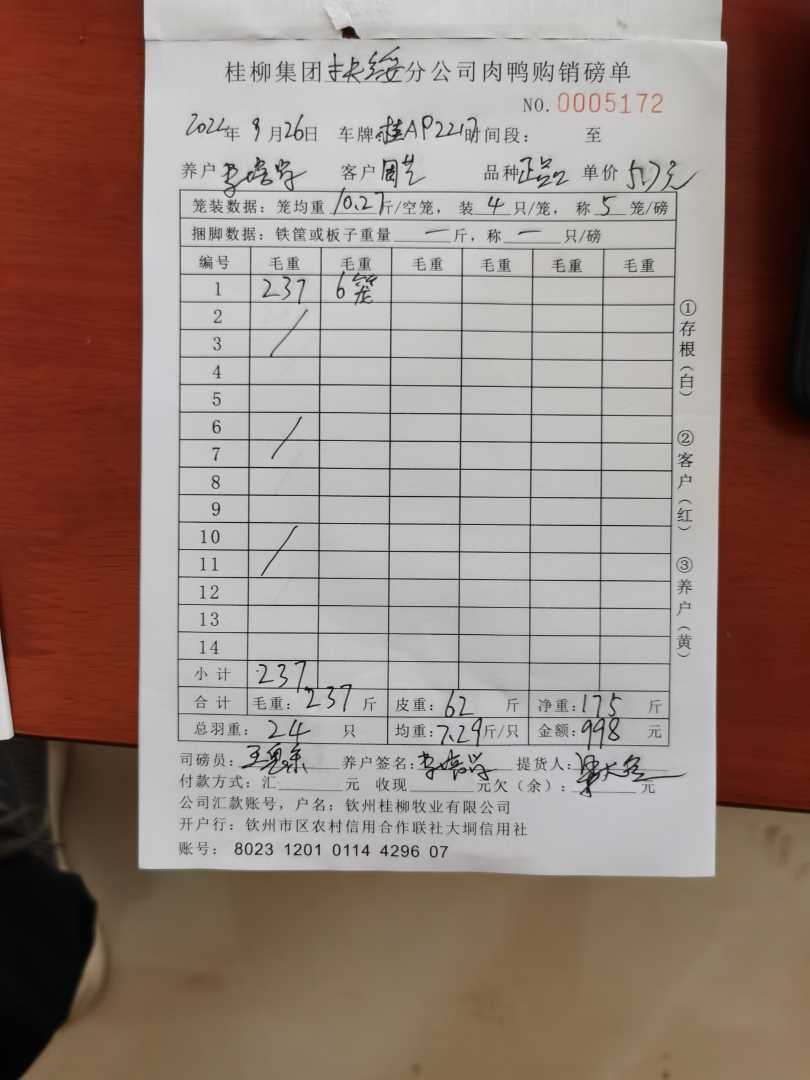 桂柳集团扶绥分公司肉鸭购销磅单
NO.0005172
2022年9月26日 车牌:桂AP2217 时间段: 至
养户 李 客户 周 品种 单价 5.7元
笼装数据:笼均重10.27斤/空笼,装4只/笼,称5笼/磅
捆脚数据:铁筐或板子重量一斤,称一只/磅
编号 毛重 毛重 毛重 毛重 毛重 毛重
1 237 6笼
2
3
4
5
6
7
8
9
10
11
12
13
14
小计 237
合计 毛重:237斤 皮重:62斤 净重:175斤
总羽重:24只 均重:7.29斤/只 金额:998元
司磅员:王 养户签名:李 提货人:梁
付款方式:汇 元 收现 元欠(余): 元
公司汇款账号,户名:钦州桂柳牧业有限公司
开户行:钦州市区农村信用合作联社大垌信用社
账号: 8023 1201 0114 4296 07
①存根(白)
②客户(红)
③养户(黄)